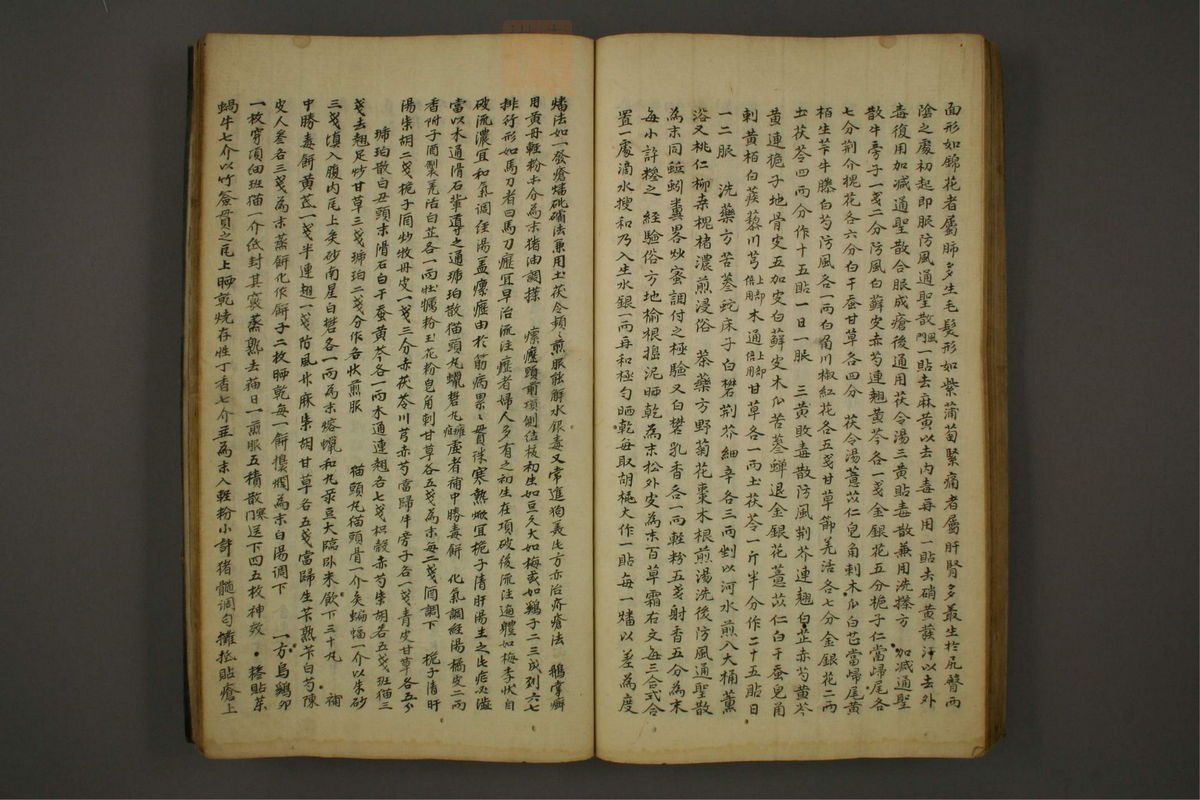 面形如錦花者屬肺多生毛髮形如紫蒲萄緊痛者屬肝腎多最生於尻臀兩
陰之處初起即服防風通聖散門風一貼去麻黃以去內毒每用一貼去硝黃發汗以去外
毒復用加減通聖散合服成瘡後通用茯苓湯三黃貼毒散兼用洗搽方 加減通聖
散牛旁子一戔二分防風白蘚皮赤芍連翹黃芩各一戔金銀花五分梔子仁當歸尾各
七分荊介槐花各六分白干蚕甘草各四分 茯令湯薏苡仁皂角刺木瓜白芷當歸尾黃
栢生芐牛膝白芍防風各一兩白蜀川椒紅花各五戔甘草節羌活各七分金銀花二兩
土茯苓四兩分作十五貼一日一服 三黃敗毒散防風荊芥連翹白芷赤芍黃芩
黃連梔子地骨皮五加皮白蘚皮木瓜苦蔘蟬退金銀花薏苡仁白干蚕皂角
刺黃栢白蒺藜川芎上却倍用木通上却倍用甘草各一兩土茯苓一斤半分作二十五貼日
一二服 洗藥方苦蔘蛇床子白礬荊芥細辛各三兩剉以河水煎入大桶薰
浴又桃仁柳桑槐楮濃煎浸俗 蔡藥方野菊花棗木根煎湯洗後防風通聖散
為末同蚯蚓糞畧炒蜜調付之極驗又白礬乳香各一兩輕粉五戔射香五分為末
每小許糝之 經驗俗方地楡根搗泥晒乾為末松外皮為末百草霜右文每三合式合
置一處滴水搜和乃入生水銀一兩再和極勻晒乾每取胡桃大作一貼每一燔以差為度
燔法如一發瘡燔硫磺法兼用土茯令頻頻煎服能解水銀毒又常進狗羹此方亦治疥瘡法 鵝掌癬
用黃丹輕粉等分為末猪油調搽 瘰癧頸前項側結核初生如豆久大如梅或如鷄子二三或列六七
排行形如馬刀者曰馬刀癧宜早治流注癧者婦人多有之初生在項破後流注遍體如梅李狀自
破流濃宜和氣調經湯盖瘰癧由於筋病累累貫珠寒熱焮宜梔子清肝湯主之此瘡必溢
當以木通滑石輩導之通琥珀散猫頭丸蠟礬丸癰疽虛者補中勝毒餅 化氣調經湯橘皮二兩
香附子酒製羌活白芷各一兩牡蠣粉玉花粉皂角刺甘草各五戔為末每二戔酒調下 梔子清肝
湯柴胡二戔梔子酒炒牧丹皮一戔三分赤茯苓川芎赤芍當歸牛旁子各一戔青皮甘草各五分
琥珀散白丑頭末滑石白干蚕黃芩各一兩木通連翹各七戔枳殼赤芍柴胡各五戔班猫三
戔去翹足炒甘草三戔琥珀二戔分作各伏煎服 猫頭丸猫頭骨一介炙蝙蝠一介以朱砂
三戔填入腹內瓦上炙砂南星白礬各一兩為末熔蠟和丸菉豆大臨臥米飮下三十丸 補
中勝毒餅黃芪一戔半連翹一戔防風升麻柴胡甘草各五戔當歸生芐熟芐白芍陳
皮人參各三戔為末蒸餅化作餅子二枚晒乾每一餅搗爛為末白湯調下 一方烏鷄卵
一枚穿頂細班猫一介紙封其窽蒸熟去猫日一煎服五積散門寒送下四五枚神效 搭貼某
蝸牛七介以竹簽貫之瓦上晒乾燒存性丁香七介並為末入輕粉小許猪髓調勻攤紙貼瘡上